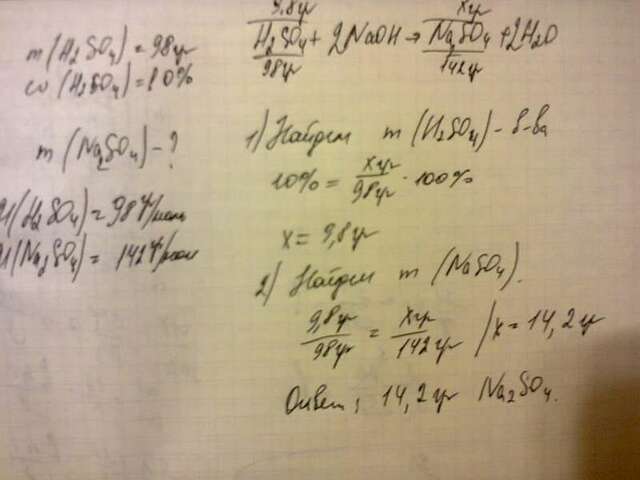 m (H₂SO₄) = 98 гр
ω (H₂SO₄) = 10%
m (Na₂SO₄) - ?
M(H₂SO₄) = 98 г/моль
M(Na₂SO₄) = 142 г/мол
9,8 гр xгр
H₂SO₄ + 2NaOH → Na₂SO₄ + 2H₂O
98гр 142гр
1) Найдем m (H₂SO₄) - в-ва
10% = xгр/98гр · 100%
x = 9,8 гр
2) Найдем m (NaSO₄).
9,8гр/98гр = xгр/142гр / x = 14,2 гр
Ответ: 14,2 гр Na₂SO₄.